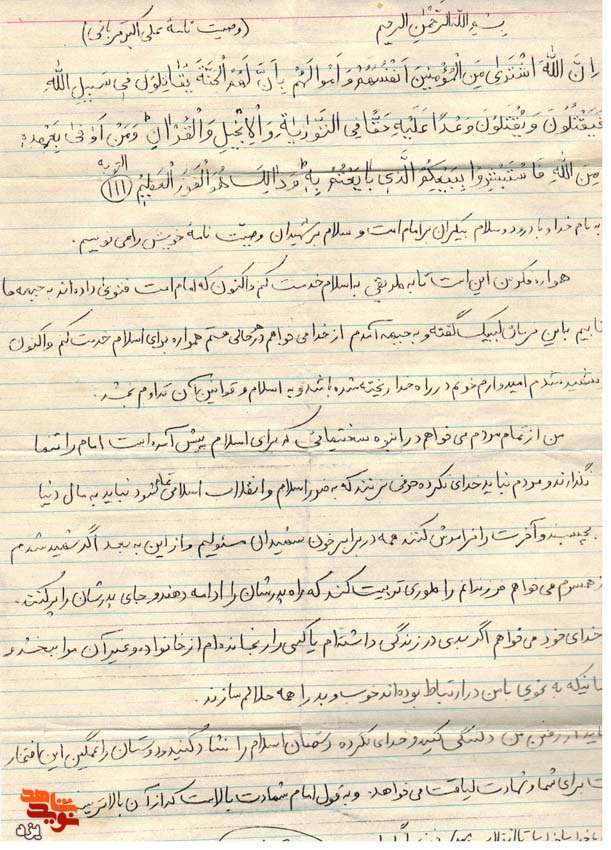 بسم الله الرحمن الرحیم (وصیت نامهٔ علی اکبر قربانی)
اِنَّ اللهَ اشْتَرى مِنَ الْمُؤْمِنینَ اَنْفُسَهُمْ وَ اَمْوالَهُمْ بِاَنَّ لَهُمُ الْجَنَّةَ یُقاتِلوُنَ فی سَبیلِ اللهِ
فَیَقْتُلُونَ وَ یُقْتَلُونَ وَعْداً عَلَیْهِ حَقّاً فِی التَّوْرایةِ وَ الْاِنْجیلِ وَ الْقُرْآنِ وَ مَنْ اَوْفى بِعَهْدِهِ
مِنَ اللهِ فَاسْتَبْشِروُا بِبَیْعِکُمُ الَّذی بایَعْتُمْ بِهِ وَ ذالِکَ هُوَ الْفَوْزُ الْعَظیمُ (۱۱۱) التوبه
به نام خدا و با درود و سلام بیکران بر امام امت و سلام بر شهیدان وصیّت نامهٔ خویش را می نویسم.
همواره فکر من این است تا به طریقی به اسلام خدمت کنم و اکنون که امام امت فتوی داده اند به جبهه ها
بیاییم به این فرمان لبیک گفته و به جبهه آمدم از خدا می خواهم در هر حالی هستم همواره برای اسلام خدمت کنم و اکنون
شهید شدم امیدوارم خونم در راه خدا ریخته شده باشد و به اسلام و قوانین آن تداوم بخشد.
من از تمام مردم می خواهم در انبوه سختیهائی که برای اسلام پیش آمده است امام را تنها
نگذارند و مردم نباید خدای نکرده حرفی بزنند که به ضرر اسلام و انقلاب اسلامی تمام شود نباید به مال دنیا
بچسبند و آخرت را فراموش کنند همه در برابر خون شهیدان مسئولیم و از این به بعد اگر شهید شدم
همسرم می خواهم فرزندانم را طوری تربیت کند که راه پدرشان را ادامه دهند و جای پدرشان را پر کنند.
خدای خود می خواهم اگر بدی در زندگی داشته ام یا کسی را رنجانده ام از خانواده و غیر آن مرا ببخشد و
که به نحوی با من در ارتباط بوده اند خوب و بد را همه حلالم سازند.
از رفتن من دلتنگی کنید و خدای نکرده دشمنان اسلام را شاد کنید و دوستان را غمگین این افتخار
برای شما و شهادت لیاقت می خواهد. و به قول امام شهادت بالاست که از آن بالاتر
نوید شاهد
یزد